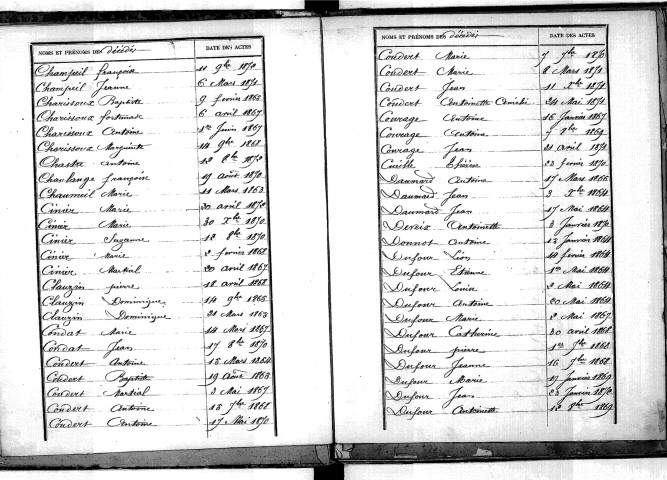 NOMS ET PRÉNOMS DES décédés DATE DES ACTES
Champeil françoise 11 9bre 1870
Champeil Jeanne 6 Mars 1871
Charissoux Baptiste 9 fevrier 1863
Charissoux fortunade 6 avril 1867
Charissoux Antoine 1er Juin 1867
Charissoux Marguerite 14 9bre 1868
Chastre antoine 12 8bre 1870
Chaulange françoise 19 août 1870
Chaumeil Marie 11 Mars 1863
Cinier Marie 20 avril 1870
Cinier Marie 30 Xbre 1870
Cinier Suzanne 12 8bre 1870
Cinier Marie 2 fevrier 1868
Cinier Martial 20 avril 1867
Clauzin pierre 18 avril 1868
Clauzin Dominique 14 9bre 1866
Clauzin Dominique 21 Mars 1863
Condat Marie 14 Mars 1867
Condat Jean 17 8bre 1870
Condert Antoine 13 Mars 1864
Condert Baptiste 19 août 1863
Condert Martial 3 Mai 1867
Condert Antoine 13 7bre 1868
Condert Antoine 17 Mai 1870
NOMS ET PRÉNOMS DES décédés DATE DES ACTES
Condert Marie 7 7bre 1870
Condert Marie 8 Mars 1871
Condert Jean 11 Xbre 1871
Condert Antoinette 24 Mai 1871
Courage Antoine 16 Janvier 1867
Courage Antoine 7 8bre 1869
Courage Jean 21 avril 1870
Cueille Thérèse 23 fevrier 1870
Daumard Antoine 17 Mars 1866
Daumard Jean 3 Xbre 1864
Daumard Jean 17 Mai 1864
Dereix Antoinette 2 Janvier 1870
Donnot Antoine 13 Janvier 1864
Dufour Léon 14 fevrier 1864
Dufour Etienne 1er Mai 1864
Dufour Louise 2 Mai 1864
Dufour Antoine 20 Mai 1864
Dufour Marie 2 Mai 1867
Dufour Catherine 20 avril 1868
Dufour pierre 7bre 1868
Dufour Jeanne 16 7bre 1868
Dufour Marie 19 Janvier 1869
Dufour Jean 23 Janvier 1870
Dufour Antoinette 12 8bre 1869